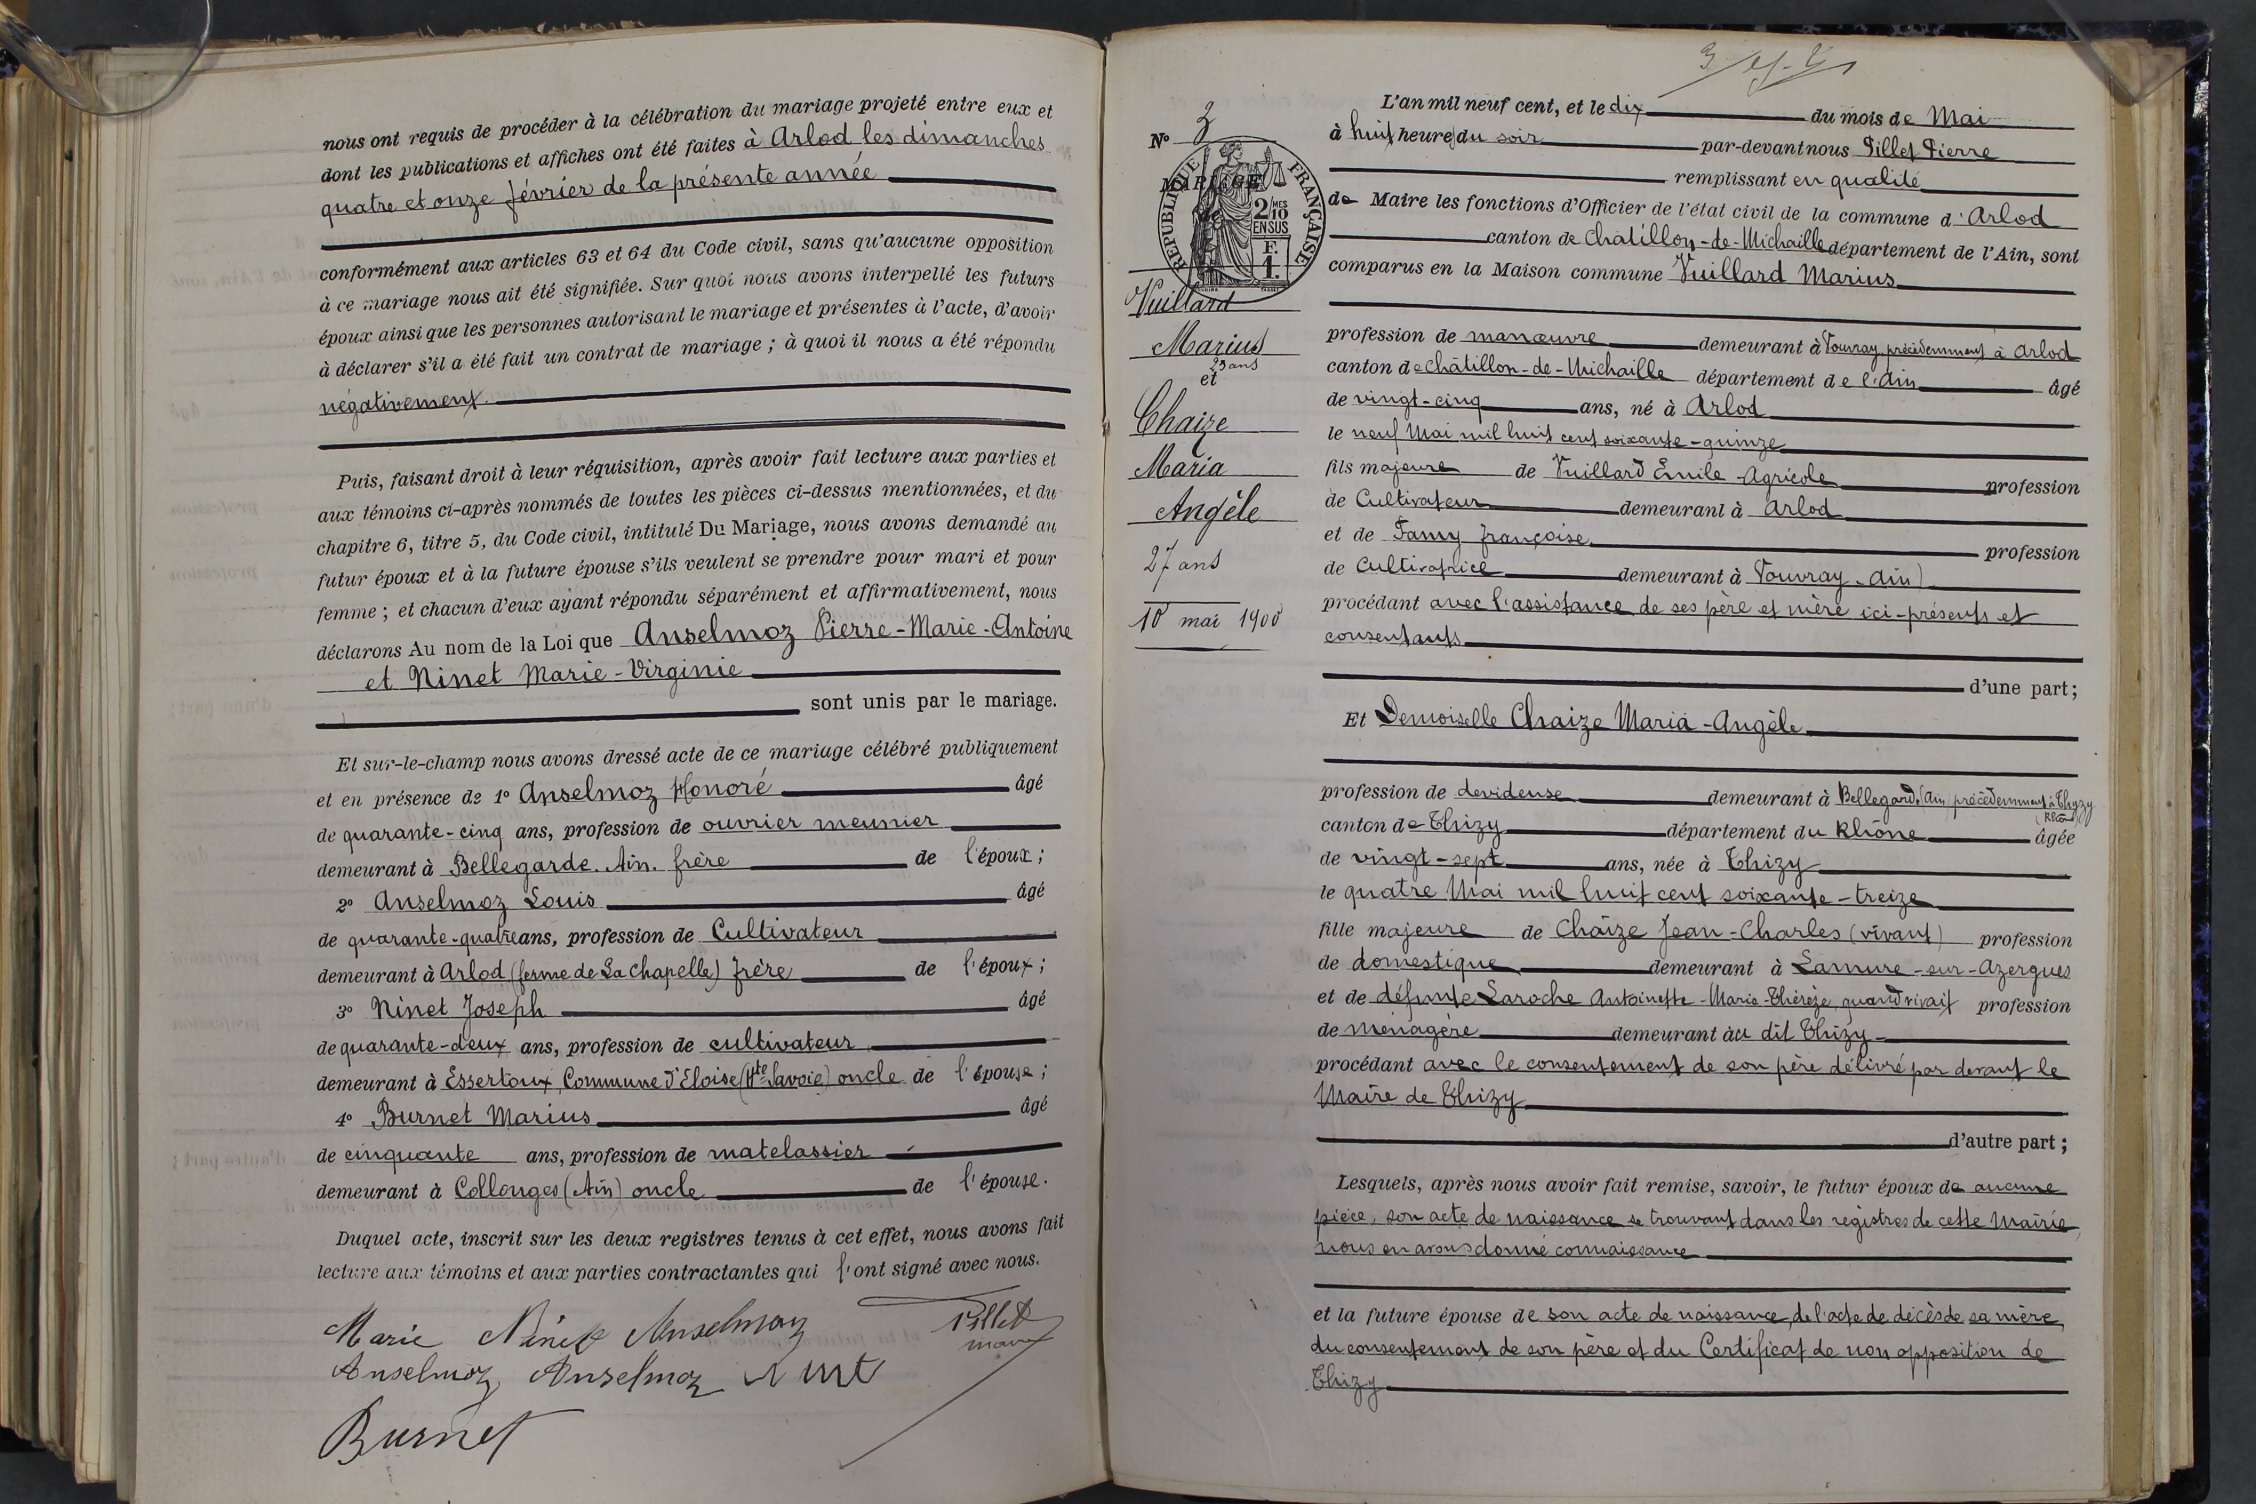 nous ont requis de procéder à la célébration du mariage projeté entre eux et
dont les publications et affiches ont été faites à Arlod les dimanches
quatre et onze février de la présente année
conformément aux articles 63 et 64 du Code civil, sans qu'aucune opposition
à ce mariage nous ait été signifiée. Sur quoi nous avons interpellé les futurs
époux ainsi que les personnes autorisant le mariage et présentes à l'acte, d'avoir
à déclarer s'il a été fait un contrat de mariage ; à quoi il nous a été répondu
négativement.
Puis, faisant droit à leur réquisition, après avoir fait lecture aux parties et
aux témoins ci-après nommés de toutes les pièces ci-dessus mentionnées, et du
chapitre 6, titre 5, du Code civil, intitulé Du Mariage, nous avons demandé au
futur époux et à la future épouse s'ils veulent se prendre pour mari et pour
femme ; et chacun d'eux ayant répondu séparément et affirmativement, nous
déclarons Au nom de la Loi que Anselmoz Pierre-Marie-Antoine
et Ninet Marie-Virginie
sont unis par le mariage.
Et sur-le-champ nous avons dressé acte de ce mariage célébré publiquement
et en présence de 1° Anselmoz Honoré âgé
de quarante-cinq ans, profession de ouvrier meunier
demeurant à Bellegarde. Ain. frère de l'époux ;
2° Anselmoz Louis âgé
de quarante-quatre ans, profession de Cultivateur
demeurant à Arlod (ferme de La Chapelle) frère de l'époux ;
3° Ninet Joseph âgé
de quarante-deux ans, profession de cultivateur
demeurant à Essertoux, Commune d'Eloise (Hte Savoie) oncle de l'épouse ;
4° Burnet Marius âgé
de cinquante ans, profession de matelassier
demeurant à Collonges (Ain) oncle de l'épouse.
Duquel acte, inscrit sur les deux registres tenus à cet effet, nous avons fait
lecture aux témoins et aux parties contractantes qui l'ont signé avec nous.
Marie Ninet Anselmoz Pillet
maire
Anselmoz Anselmoz
Burnet
N° 3
MARIAGE
de
RÉPUBLIQUE FRANÇAISE
2/10 MES
EN SUS
F.
1.
Vuillard
Marius
25 ans
et
Chaize
Maria
Angèle
27 ans
10 mai 1900
L'an mil neuf cent, et le dix du mois de Mai
à huit heures du soir par-devant nous Pillet Pierre
remplissant en qualité
de Maire les fonctions d'Officier de l'état civil de la commune d'Arlod
canton de Chatillon-de-Michaille département de l'Ain, sont
comparus en la Maison commune Vuillard Marius
profession de manœuvre demeurant à Vouvray, précédemment à Arlod
canton de Châtillon-de-Michaille département de l'Ain âgé
de vingt-cinq ans, né à Arlod
le neuf Mai mil huit cent soixante-quinze
fils majeure de Vuillard Emile Agricole profession
de Cultivateur demeurant à Arlod
et de Famy Françoise profession
de Cultivatrice demeurant à Vouvray. Ain)
procédant avec l'assistance de ses père et mère ici-présents et
consentants
d'une part ;
Et Demoiselle Chaize Maria-Angèle
profession de devideuse demeurant à Bellegarde (Ain) précédemment à Thizy
(Rhône)
canton de Thizy département du Rhône âgée
de vingt-sept ans, née à Thizy
le quatre Mai mil huit cent soixante-treize
fille majeure de Chaize Jean-Charles (vivant) profession
de domestique demeurant à Lamure-sur-Azergues
et de défunte Laroche Antoinette-Marie-Thérèze, quand vivait profession
de Ménagère demeurant au dit Thizy
procédant avec le consentement de son père délivré par devant le
Maire de Thizy
d'autre part ;
Lesquels, après nous avoir fait remise, savoir, le futur époux de aucune
pièce, son acte de naissance se trouvant dans les registres de cette Mairie,
nous en avons donné connaissance
et la future épouse de son acte de naissance, de l'acte de décès de sa mère,
du consentement de son père et du Certificat de non opposition de
Thizy